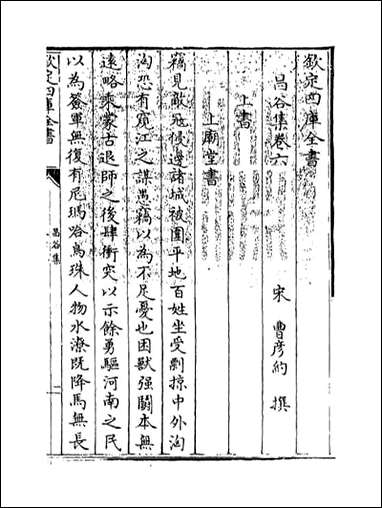 欽定四庫全書
昌谷集卷六
宋 曹彦約 撰
上書
上廟堂書
竊見敵侵邊諸城被圍平地百姓坐受剽掠中外洶
洶恐有窺江之謀愚竊以為不足憂也困獸强闘本無
遠略乘蒙古退師之後肆衝突以示餘勇驅河南之民
以為簽軍無復有尼瑪哈烏珠人物水潦既降馬無長
欽定四庫全書
昌谷集
一